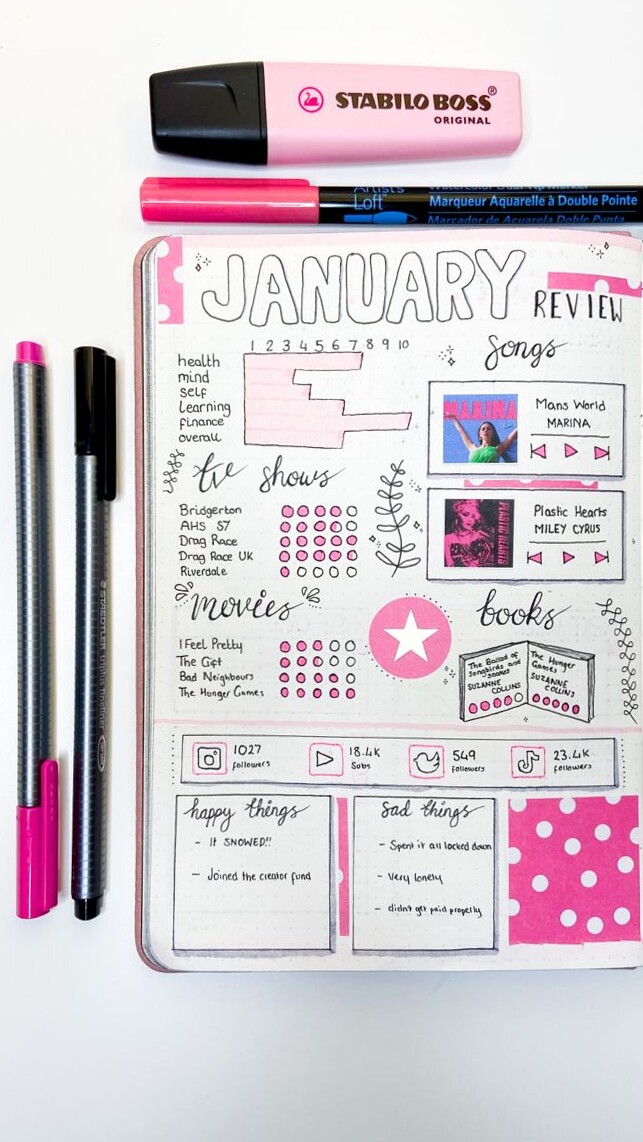 STABILO BOSS®
ORIGINAL
Artist's
Loft™
Watercolor Dual-Tip Marker
Marqueur Aquarelle à Double Pointe
Marcador de Acuarela Doble Punta
JANUARY
REVIEW
1 2 3 4 5 6 7 8 9 10
health
mind
self
learning
finance
overall
Songs
MARINA
Mans World
MARINA
PLASTIC HEARTS
Plastic Hearts
MILEY CYRUS
tv shows
Bridgerton
AHS S7
Drag Race
Drag Race UK
Riverdale
movies
I Feel Pretty
The Gift
Bad Neighbours
The Hunger Games
books
The Ballad of
Songbirds and
Snakes
SUZANNE
COLLINS
The Hunger
Games
SUZANNE
COLLINS
1027
followers
18.4K
Subs
549
followers
23.4K
followers
happy things
- It SNOWED!!
- Joined the creator fund
Sad things
- Spent it all locked down
- Very lonely
- didn't get paid properly
STAEDTLER triplus fineliner